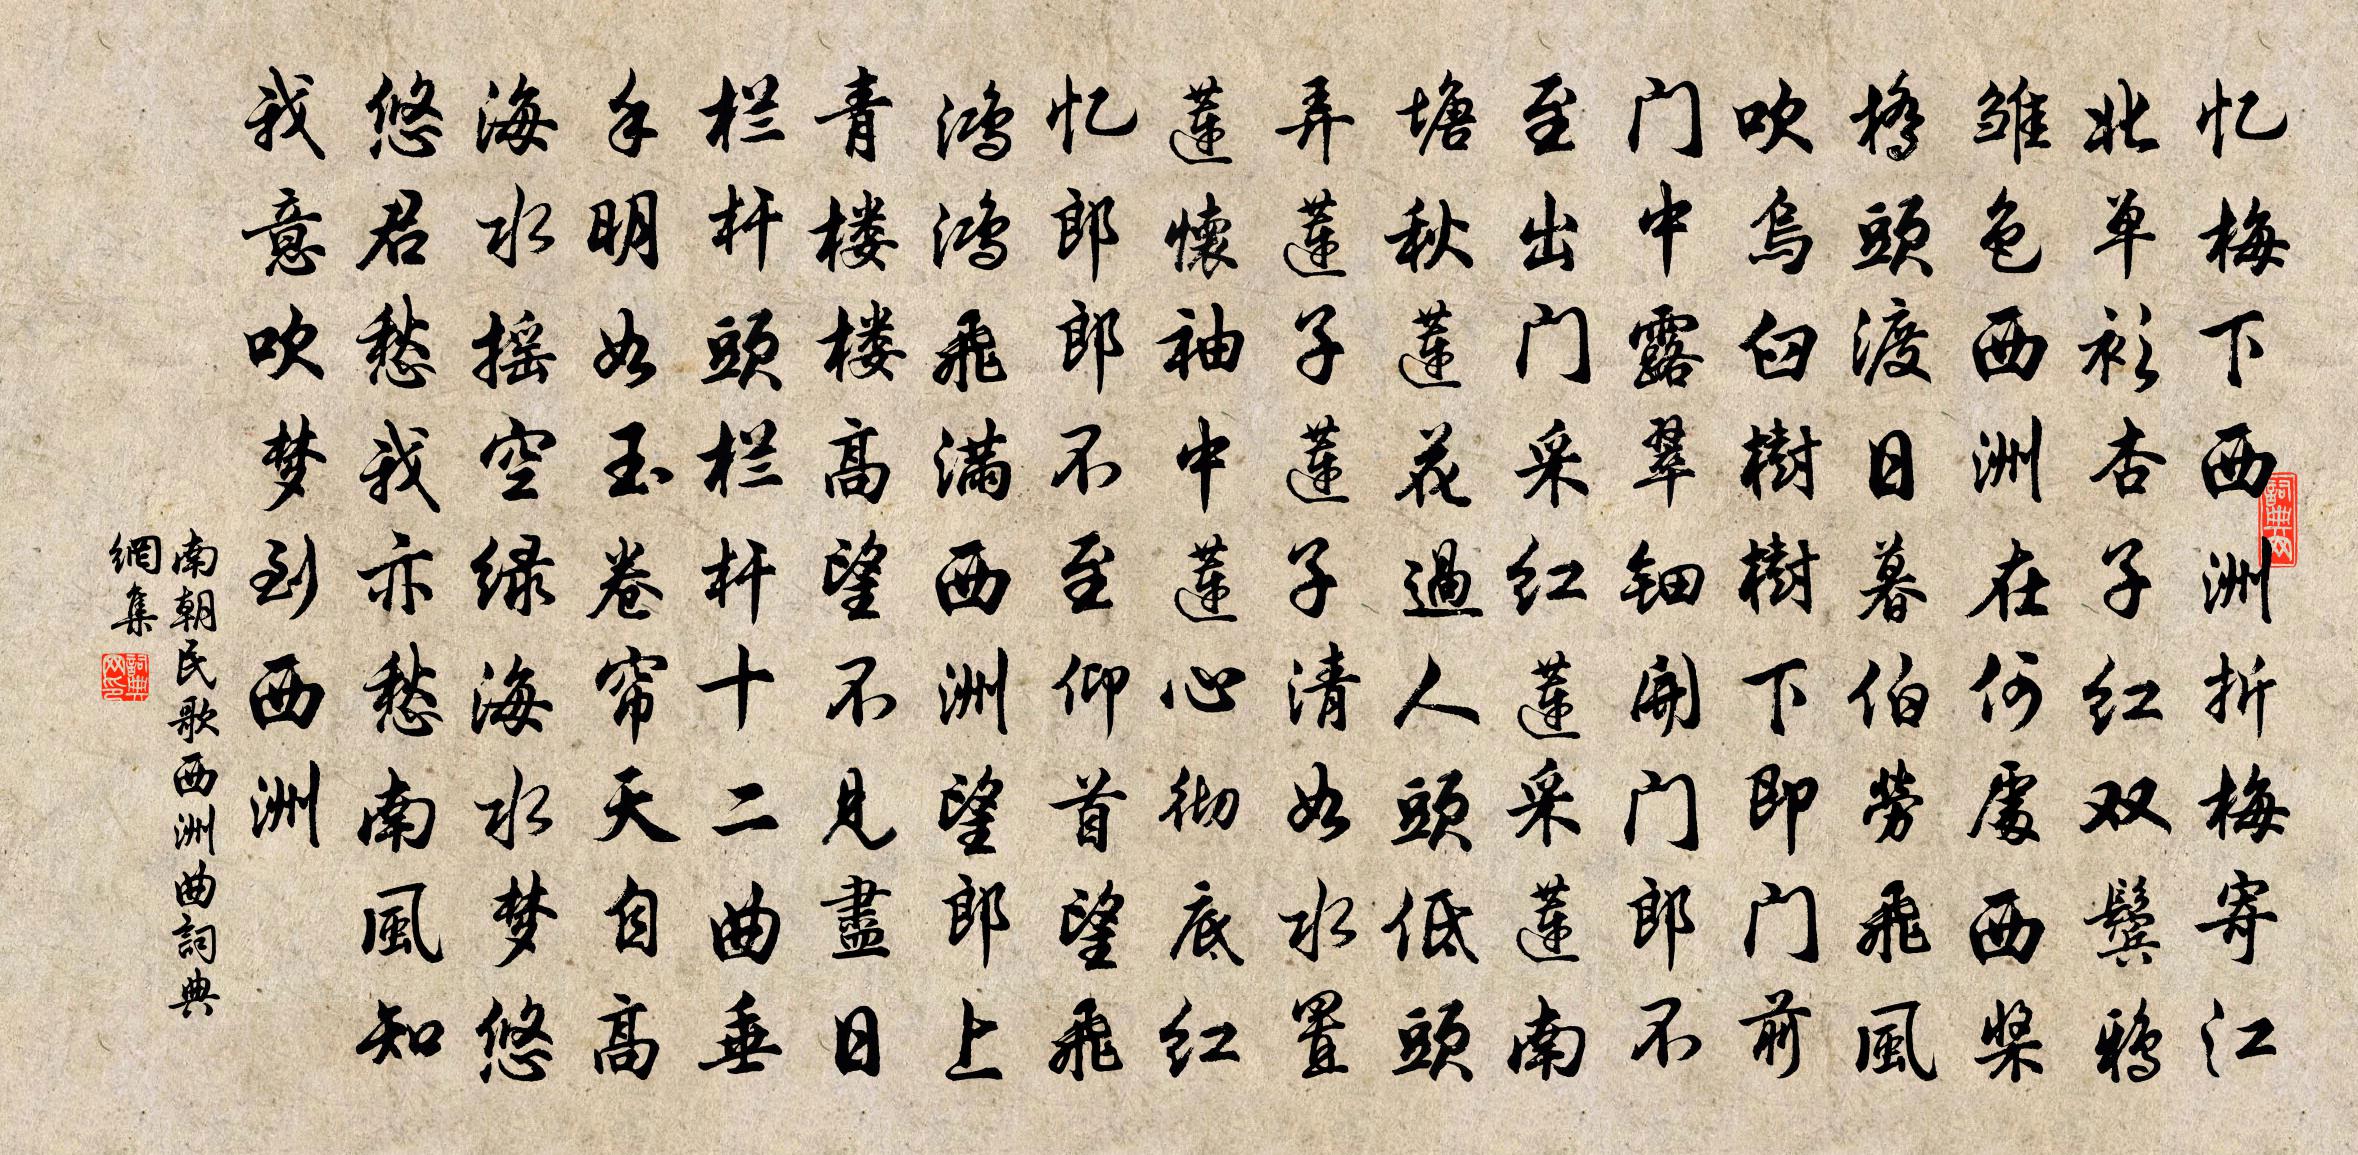 忆梅下西洲折梅寄江
北单衫杏子红双鬓鸦
雏色西洲在何處西桨
橋頭渡日暮伯勞飛風
吹烏臼樹樹下即门前
门中露翠钿開门郎不
至出门采红蓮采蓮南
塘秋蓮花過人頭低頭
弄蓮子蓮子清如水置
蓮懷袖中蓮心彻底红
忆郎郎不至仰首望飛
鸿鸿飛满西洲望郎上
青楼楼高望不見盡日
栏杆頭栏杆十二曲垂
手明如玉卷帘天自高
海水摇空绿海水梦悠
悠君愁我亦愁南風知
我意吹梦到西洲
南朝民歌西洲曲詞典
網集
詞典网
詞典网印